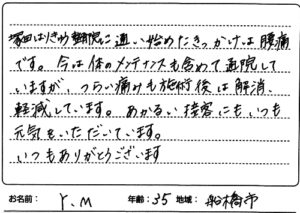 塚田はりきゅう整骨院に通い始めたきっかけは腰痛
です。今は体のメンテナンスも含めて通院して
いますが、つらい痛みも施術後は解消、
軽減しています。あかるい接客にもいつも
元気をいただいています。
いつもありがとうございます
お名前: Y.M 年齢: 35 地域: 船橋市